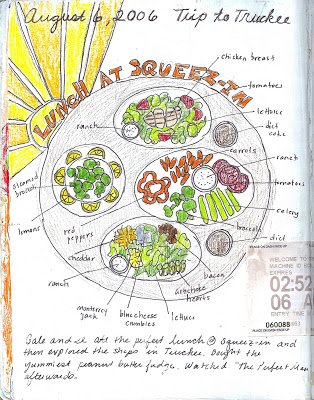 August 6, 2006 Trip to Truckee
LUNCH AT SQUEEZ-IN
chicken breast
tomatoes
lettuce
diet coke
ranch
carrots
ranch
steamed broccoli
tomatoes
celery
lemons
red peppers
broccoli
diet
cheddar
ranch
bacon
artichoke hearts
monterey jack
blue cheese crumbles
lettuce
WELCOME TO
MACHINE ID
EXPIRES
02:52
06 A
ENTRY TIME
060088
PLACE ON DASH FACE UP
Gale and I ate the perfect lunch @ Squeez-in and
then explored the shops in Truckee. Bought the
yummiest peanut butter fudge. Watched "The Perfect Man"
afterwards.